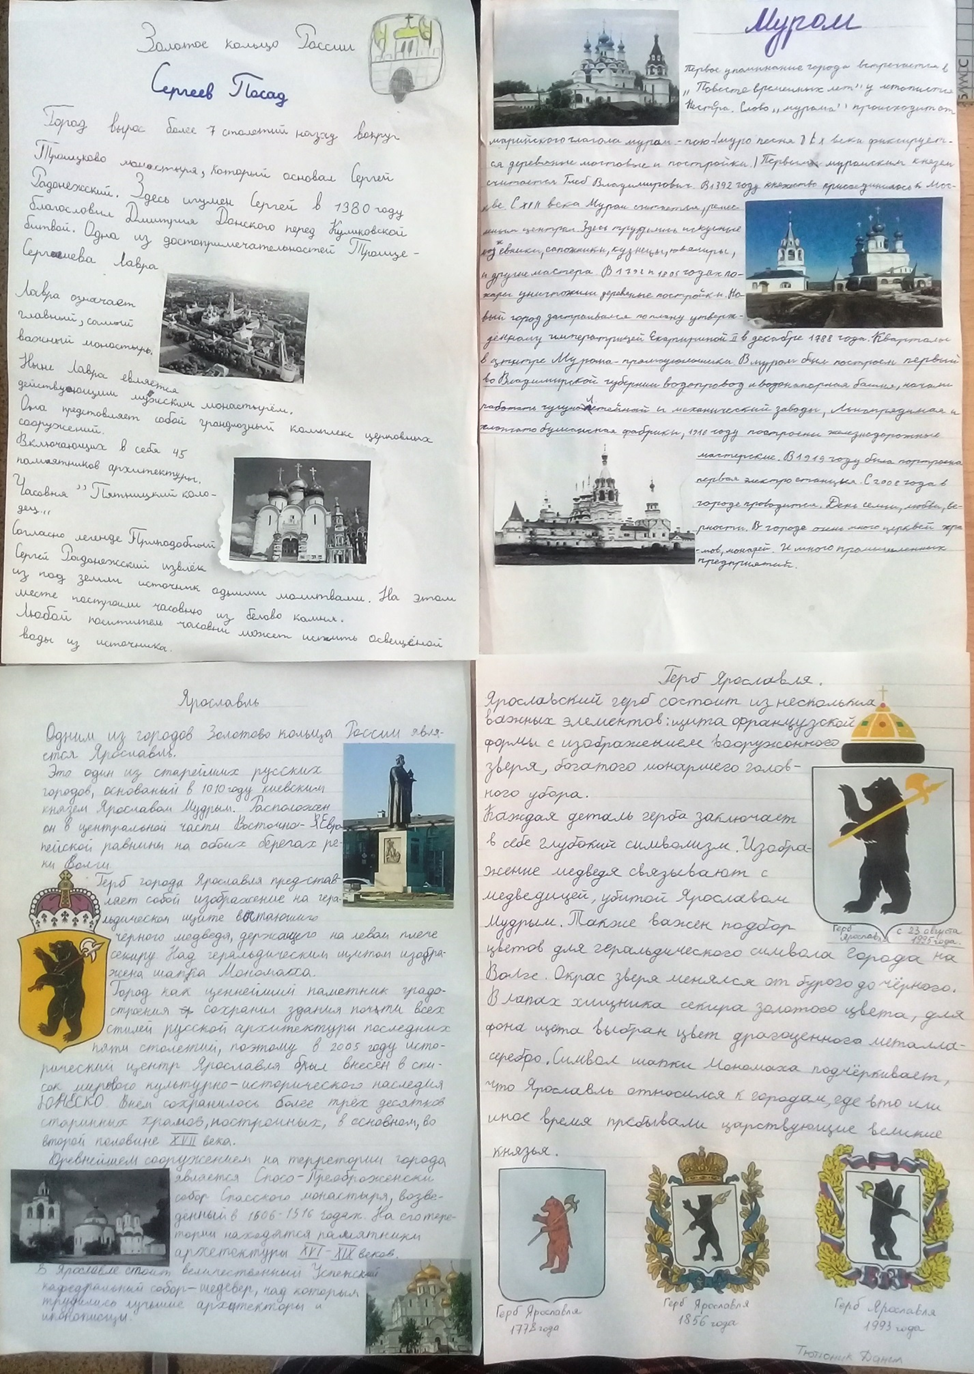 Золотое кольцо России
Сергеев Посад
Город вырос более 7 столетий назад вокруг
Троицкого монастыря, который основал Сергей
Радонежский. Здесь игумен Сергей в 1380 году
благословил Дмитрия Донского перед Куликовской
битвой. Одна из достопримечательностей Троице-
Сергиева Лавра
Лавра означает
главный, самый
важный монастырь.
Ныне Лавра евляется
действующим мужским монастырём.
Она предстовляет собой грандиозный комплекс церковных
сооружений.
Включающих в себя 45
памятников архитектуры.
Часовня "Пятницкий коло-
дец"
Согласно легенде Преподобный
Сергей Радонежский извлёк
из под земли источник одними молитвами. На этом
месте построили часовню из белого камня.
Любой посититель часовни может испить освещёной
воды из источника.
Муром
Первое упоминание города встречается в
"Повести временных лет" у летописца
Нестора. Слово "мурома" происходит от
марийского глагола мурам - пою (муро песня)
ся деревоные мостовые и постройки. Первым муромским князем
считается Глеб Владимирович. В 1392 году княжество присоединилось к Мос-
кве. С XVII века Муром считается, ремес-
ным центром. Здесь трудились искусные
сапожники, кузнецы, ювелиры,
и другие мастера. В 1792 и 1805 годах по-
жары уничтожили деревяные постройки. Но-
вый город застраивался по плану утверж-
денному императрицей Екатериной II в декабре 1988 года. Кварталы
в центре Мурома - прямоугольники. В муроме был построен первый
во Владимирской губернии водопровод и водонапорная башня, начали
работать чугунолитейный и механический заводы, Льнопрядильная и
хлопчатобумажная фабрики, построены железнодорожные
мастерские. В 1919 году была построена
первая электростанция. С 2008 года в
городе проводится. День семьи, любви, ве-
рности. В городе очень много церквей хра-
мов, И много промышленных
предприятий.
Ярославль
Одним из городов Золотово кольца России явля-
ется Ярославль.
Это один из старейших русских
городов, основаный в 1010 году киевским
князем Ярославом Мудрым. Расположен
он в центральной части Восточно-Евро
пейской равнины на обоих берегах ре-
ки Волги.
Герб города Ярославля представ-
ляет собой изображение на гера-
льдическом щите востающего
чёрного медведя, держащего на левом плече
секиру. Над геральдическим щитом изобра-
жена шапка Мономакса.
Город как ценнейший памятник градо-
строения сохранил здания почти всех
стилей русской архитектуры последних
пяти столетий, поэтому в 2005 году исто-
рический центр Ярославля был внесён в спи-
сок мирового культурно-исторического наследия
ЮНЕСКО. Внем сохранилось более трёх десятков
старинных храмов, построиных, в основном, во
второй половине XVII века.
Древнейшем сооружением на территории города
является Спасо-Преображенски
собор Спасского монастыря, возве-
денный в 1506-1516 годах. На его терре-
тории находятся памятники
архетектуры XVI-XIX веков.
В Ярославле стоит величественный Успенский
кафедральный собор-шедевр, над которым
трудились лучшие архитекторы и
иконописцы.
Герб Ярославля.
Ярославский герб состоит из нескольких
важных элементов: щита французской
формы с изображением вооружонного
зверя, богатого монаршего голов-
ного убора.
Каждая деталь герба заключает
в себе глубокий символизм. Изобра-
жение медведя связывают с
медведицей, убитой Ярославом
Мудрым. Также важен подбор
цветов для геральдического символа города на
Волге. Окрас зверя менялся от бурого до чёрного.
В лапах хищника секира золотого цвета, для
фона щита выбран цвет драгоценного металла-
серебро. Символ шапки Мономаха подчёркивает,
что Ярославль относился к городам, где в то или
иное время пребывали царствующие великие
князья.
Герб Ярославль с 23 августа 1995 года.
Герб Ярославля
1778 года
Герб Ярославля
1856 года
Герб Ярославля
1993 года
Данил